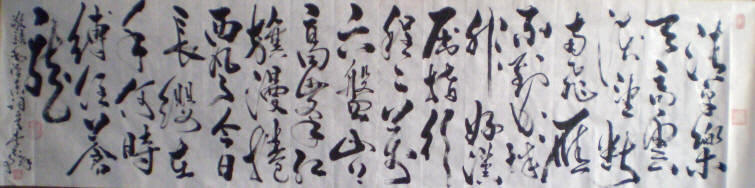 清平樂
天高雲
淡望斷
南飛雁
不到長城
非好漢
屈指行
程二萬
六盤山上
高峰紅
旗漫捲
西風今日
長纓在
手何時
縛住蒼
龍